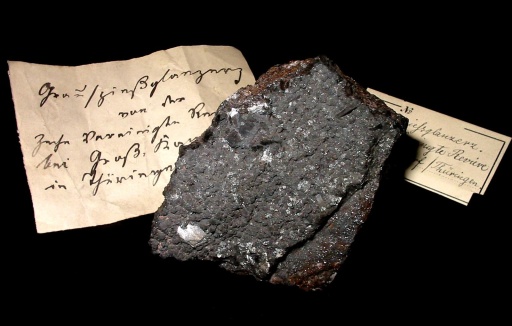 Grauspießglanzerz
von der
Zehn Vereinigte Re
bei Groß
in Thüringe
№
ißglanzerz.
gte Reviere
/Thüringen.